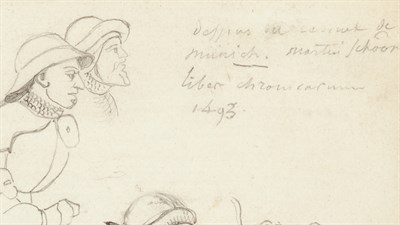 dessins cabinet de
munich. martin schoon
liber chronicarum
1493